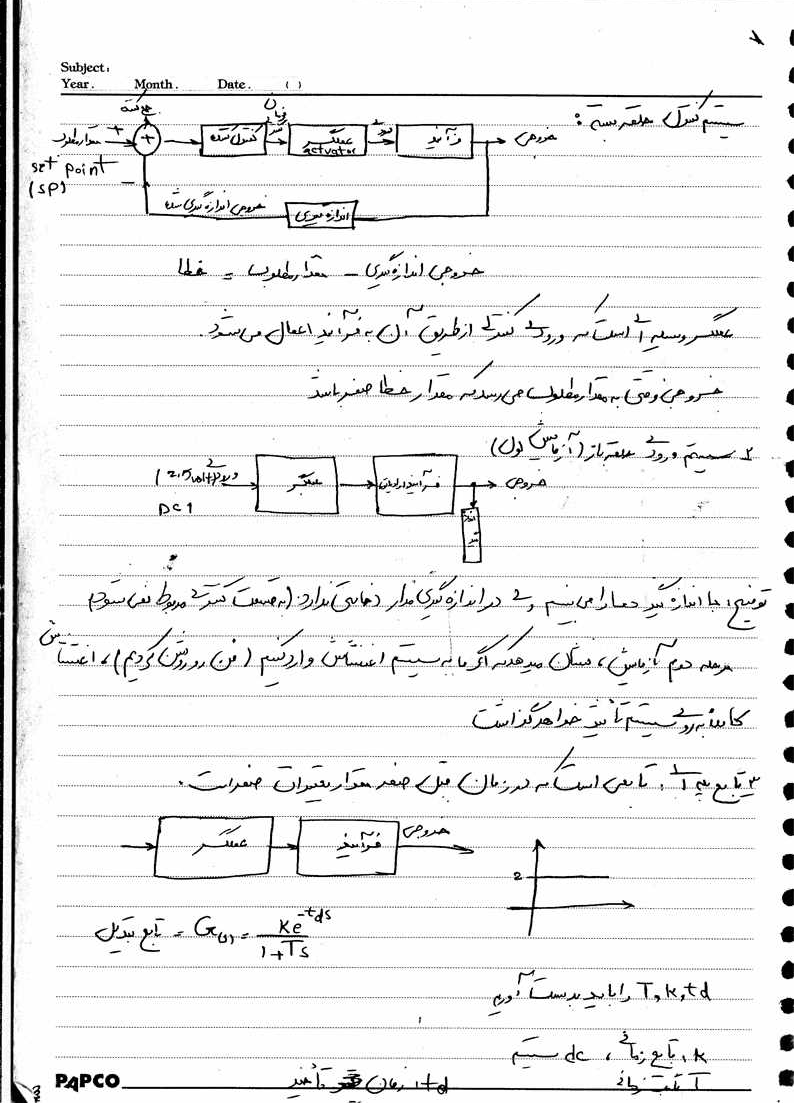 Subject:
Year. Month. Date. ( )
سیستم کنترل حلقه بسته:
جمع کننده
مقدار مطلوب + + کنترل کننده فرمان عملگر actuator فرآیند خروجی
set point
(SP)
−
خروجی اندازه گیری شده اندازه گیری
خروجی اندازه گیری − مقدار مطلوب = خطا
عملگر وسیله ای است که ورودی کنترلی از طریق آن به فرآیند اعمال می شود.
خروجی وقتی به مقدار مطلوب می رسد که مقدار خطا صفر باشد
۲ سیستم ورودی حلقه باز (آزمایش اول)
2.5 volt عملگر فرآیند خروجی
DC
توضیح: با اندازه گیر دما را می بینیم ولی در اندازه گیری مدار دخالتی ندارد (به قسمت کنترلی مربوط نمی شود)
مرحله دوم آزمایش، نشان میدهد که اگر ما به سیستم اغتشاش وارد کنیم (فن رو روشن کردیم)، اغتشاش
کاملا به روی سیستم تأثیر خواهد گذاشت
۳ تابع پله: تابعی است که در زمان قبل صفر مقدار تغییرات صفر است.
عملگر فرآیند خروجی
2
تابع تبدیل = G(s) = Ke^-tds / 1+Ts
T, k, td را باید بدست آوریم
k: dc سیستم
td: زمان تأخیر
PAPCO